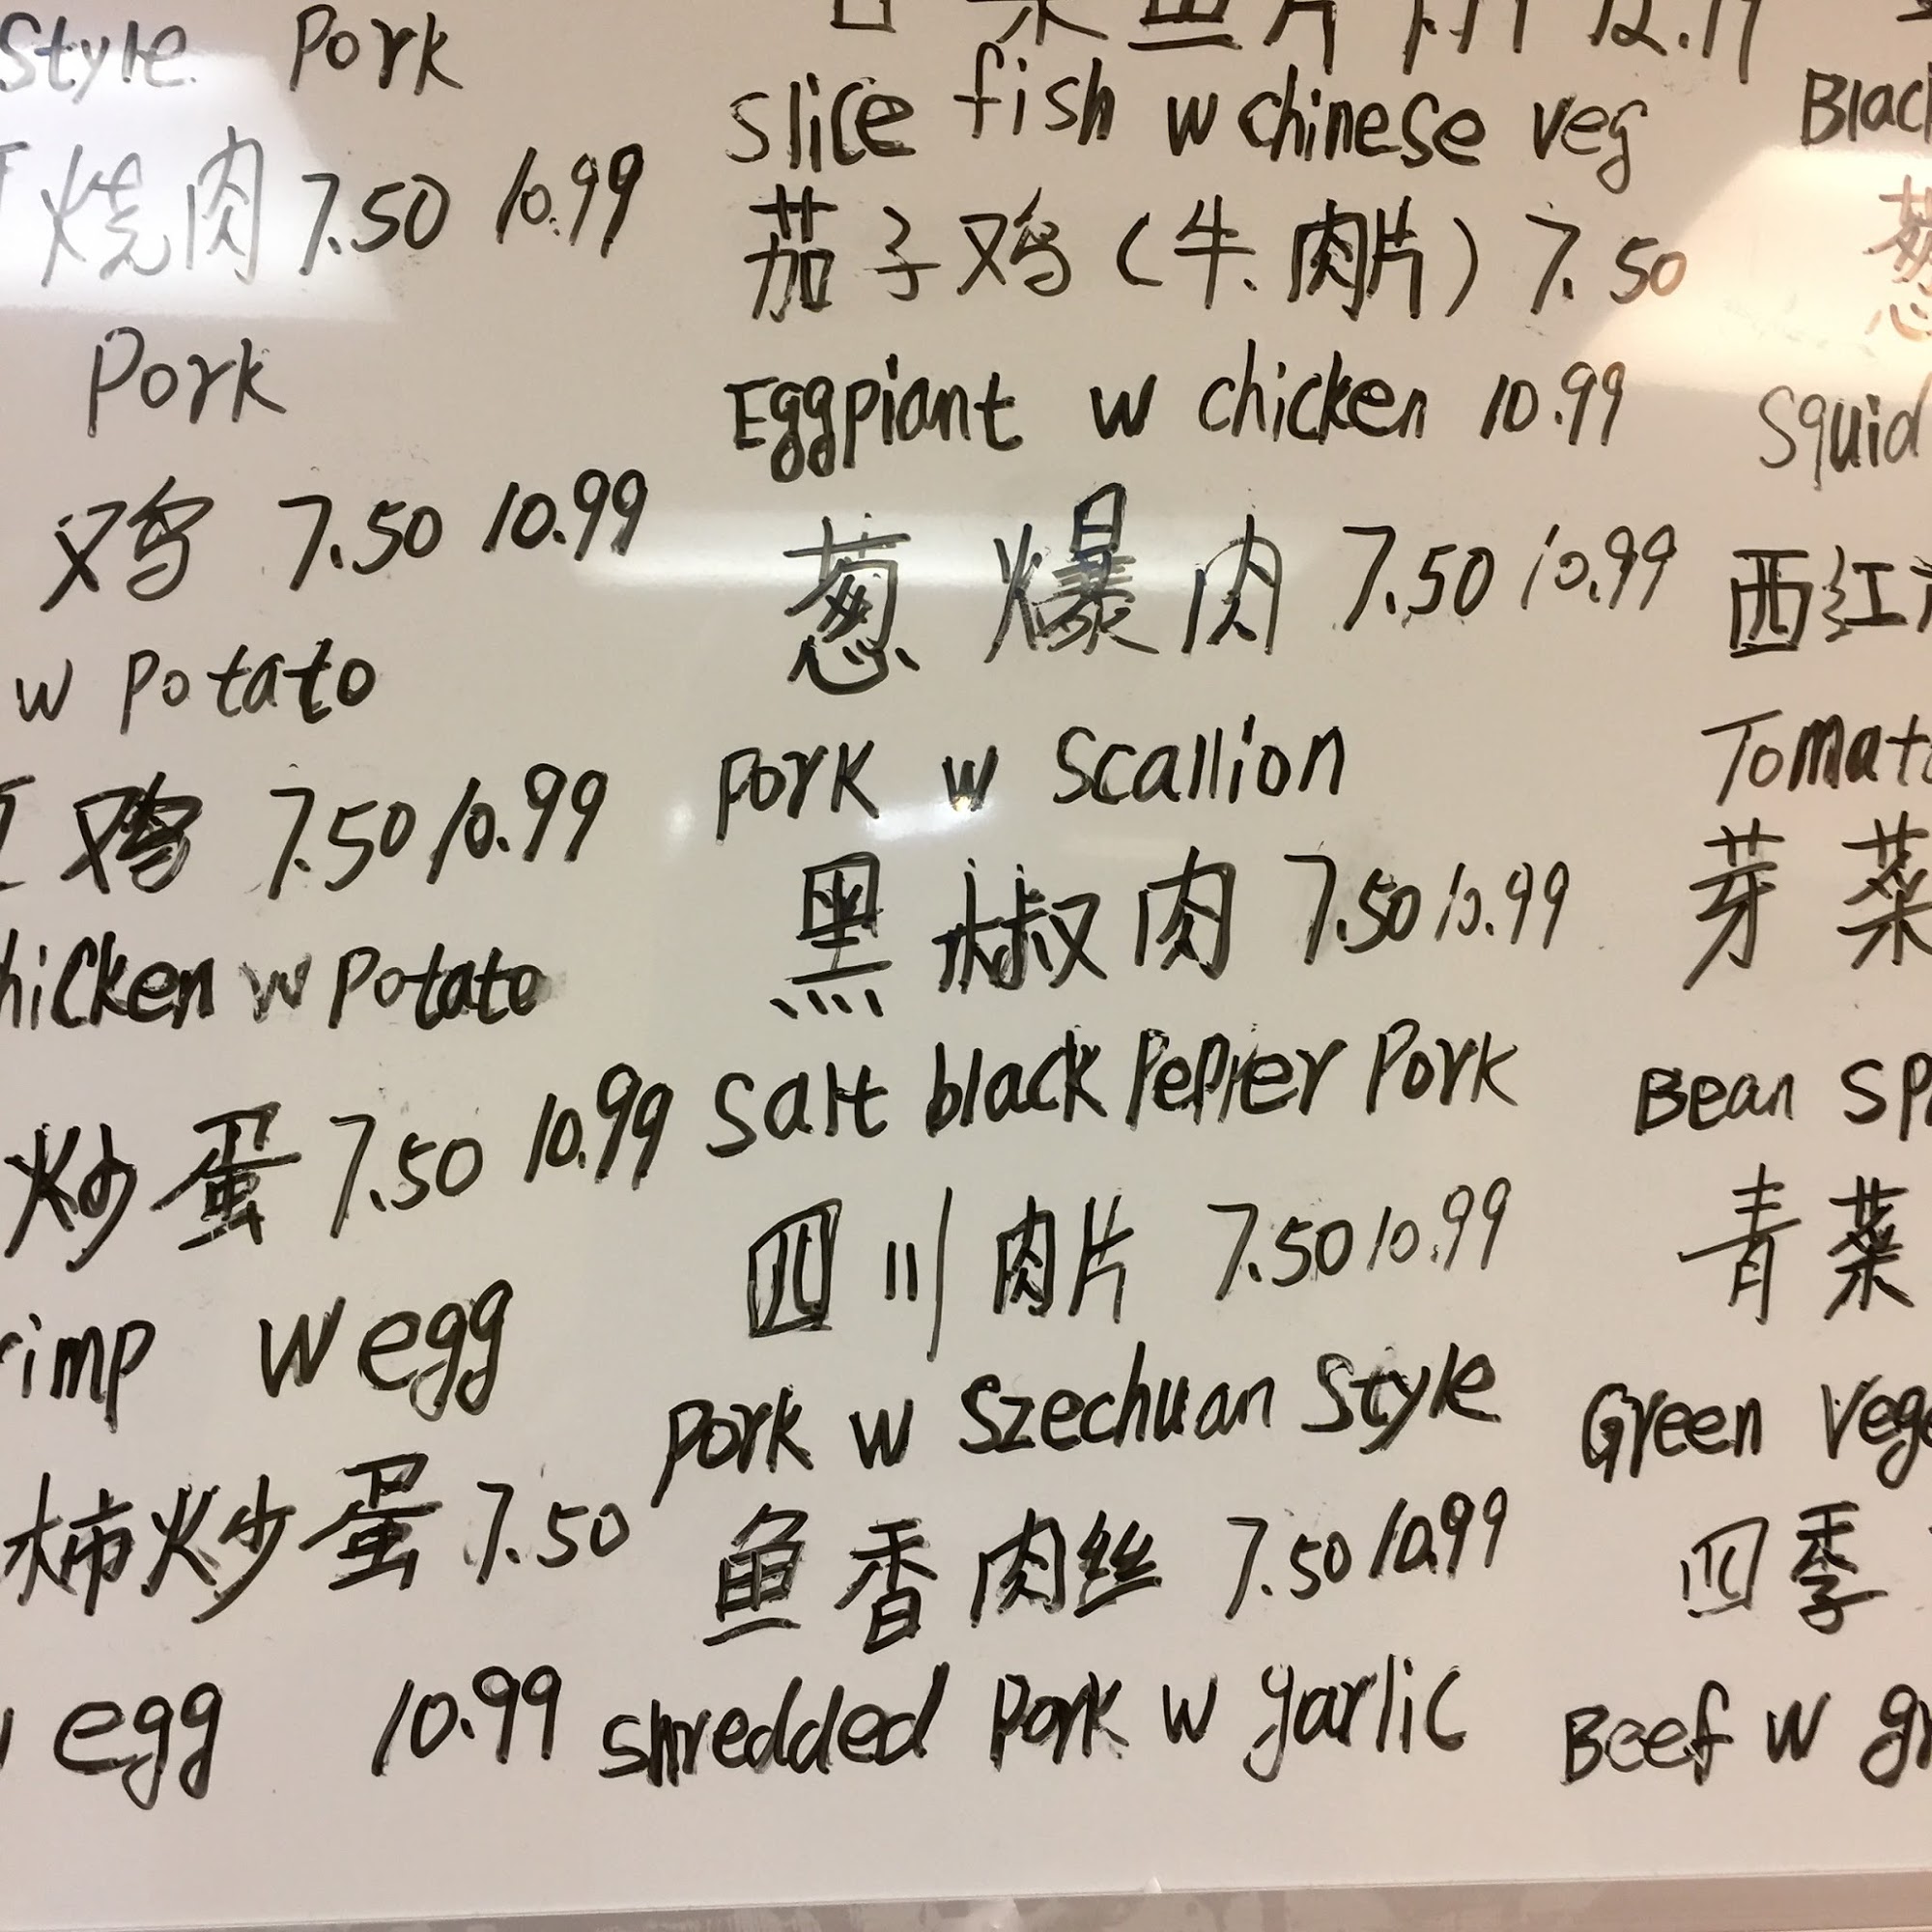 Style Pork
烧肉 7.50 10.99
Pork
鸡 7.50 10.99
w potato
鸡 7.50 10.99
hicken w potato
炒蛋 7.50 10.99
rimp w egg
柿炒蛋 7.50
egg 10.99
12.19
Slice fish w chinese veg
茄子鸡(牛、肉片) 7.50
Eggpiant w chicken 10.99
葱爆肉 7.50 10.99
Pork w Scallion
黑椒肉 7.50 10.99
Salt black Pepper Pork
四川肉片 7.50 10.99
Pork w Szechuan Style
鱼香肉丝 7.50 10.99
Shredded Pork w garlic
Blac
葱
Squid
西红
Tomato
芽菜
Bean Sp
青菜
Green Vege
四季
Beef w gr